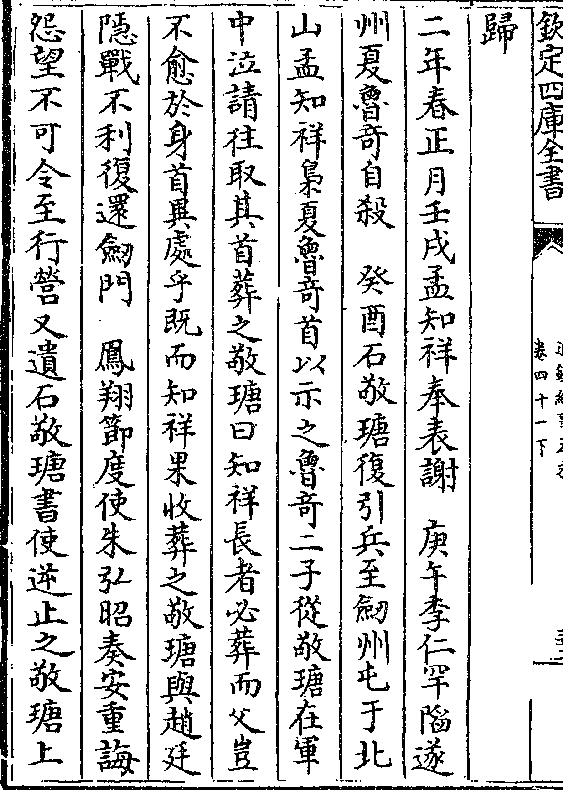 欽定四庫全書
卷四十一下
歸
二年春正月壬戌孟知祥奉表謝　庚午李仁罕陷遂
州夏魯奇自殺　癸酉石敬瑭復引兵至劒州屯于北
山孟知祥梟夏魯奇首以示之魯奇二子從敬瑭在軍
中泣請往取其首葬之敬瑭曰知祥長者必葬而父豈
不愈於身首異處乎既而知祥果收葬之敬瑭與趙廷
隐戰不利復還劒門　鳳翔節度使朱弘昭奏安重誨
怨望不可令至行營又遺石敬瑭書使逆止之敬瑭上